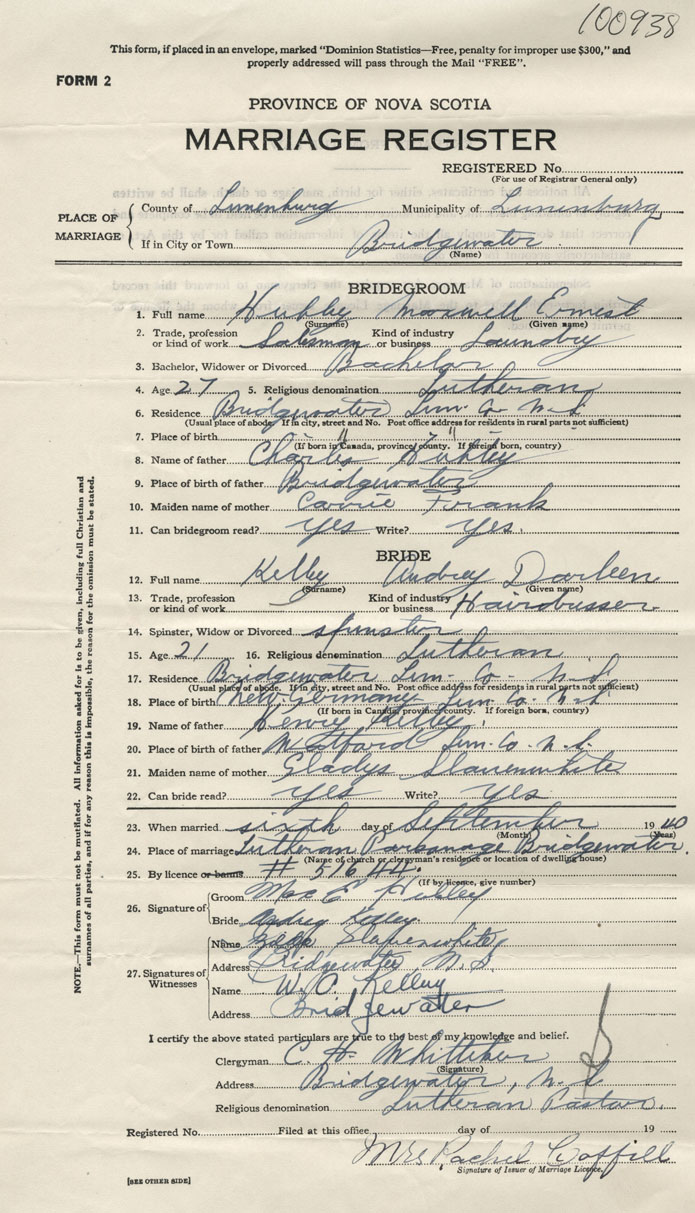 100938
This form, if placed in an envelope, marked "Dominion Statistics—Free, penalty for improper use $300," and
properly addressed will pass through the Mail "FREE".
FORM 2
PROVINCE OF NOVA SCOTIA
MARRIAGE REGISTER
REGISTERED No.
(For use of Registrar General only)
PLACE OF MARRIAGE
County of Lunenburg Municipality of Lunenburg
If in City or Town Bridgewater
(Name)
BRIDEGROOM
1. Full name Hubley Maxwell Ernest
(Surname) (Given name)
2. Trade, profession or kind of work Salesman Kind of industry or business Laundry
3. Bachelor, Widower or Divorced Bachelor
4. Age 27 5. Religious denomination Lutheran
6. Residence Bridgewater Lun. Co. N.S.
(Usual place of abode. If in city, street and No. Post office address for residents in rural parts not sufficient)
7. Place of birth " "
(If born in Canada, province, county. If foreign born, country)
8. Name of father Charles Hubley
9. Place of birth of father Bridgewater
10. Maiden name of mother Carrie Frank
11. Can bridegroom read? yes Write? yes
BRIDE
12. Full name Kelley Audrey Darleen
(Surname) (Given name)
13. Trade, profession or kind of work Kind of industry or business Hairdresser
14. Spinster, Widow or Divorced spinster
15. Age 21 16. Religious denomination Lutheran
17. Residence Bridgewater Lun. Co. N.S.
(Usual place of abode. If in city, street and No. Post office address for residents in rural parts not sufficient)
18. Place of birth New Germany Lun. Co. N.S.
(If born in Canada, province, county. If foreign born, country)
19. Name of father Henry Kelley
20. Place of birth of father Lun. Co. N.S.
21. Maiden name of mother Gladys Slauenwhite
22. Can bride read? yes Write? yes
23. When married sixth day of September 19 40
(Month) (Year)
24. Place of marriage Lutheran Parsonage Bridgewater.
(Name of church or clergyman's residence or location of dwelling house)
25. By licence or banns # 51644
(If by licence, give number)
26. Signature of
Groom Max E Hubley
Bride Audrey Kelley
27. Signatures of Witnesses
Name Slauenwhite
Address Bridgewater N.S.
Name W. O. Kelley
Address Bridgewater
I certify the above stated particulars are true to the best of my knowledge and belief.
Clergyman C. H. Whitteker
(Signature)
Address Bridgewater, N.S.
Religious denomination Lutheran Pastor.
Registered No. Filed at this office day of 19
Mrs Rachel Coffill
Signature of Issuer of Marriage Licence.
[SEE OTHER SIDE]
NOTE.—This form must not be mutilated. All information asked for is to be given, including full Christian and
surnames of all parties, and if for any reason this is impossible, the reason for the omission must be stated.